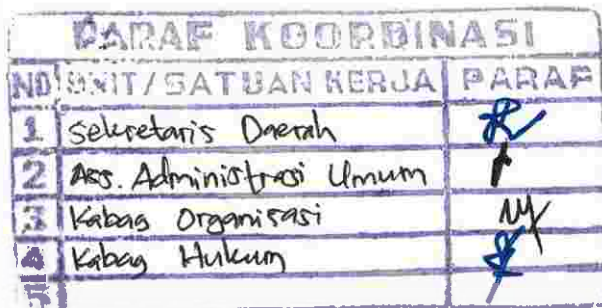 PARAF KOORDINASI
NO UNIT/SATUAN KERJA PARAF
1. Sekretaris Daerah
2 Ass. Administrasi Umum
3 Kabag Organisasi
4 Kabag Hukum